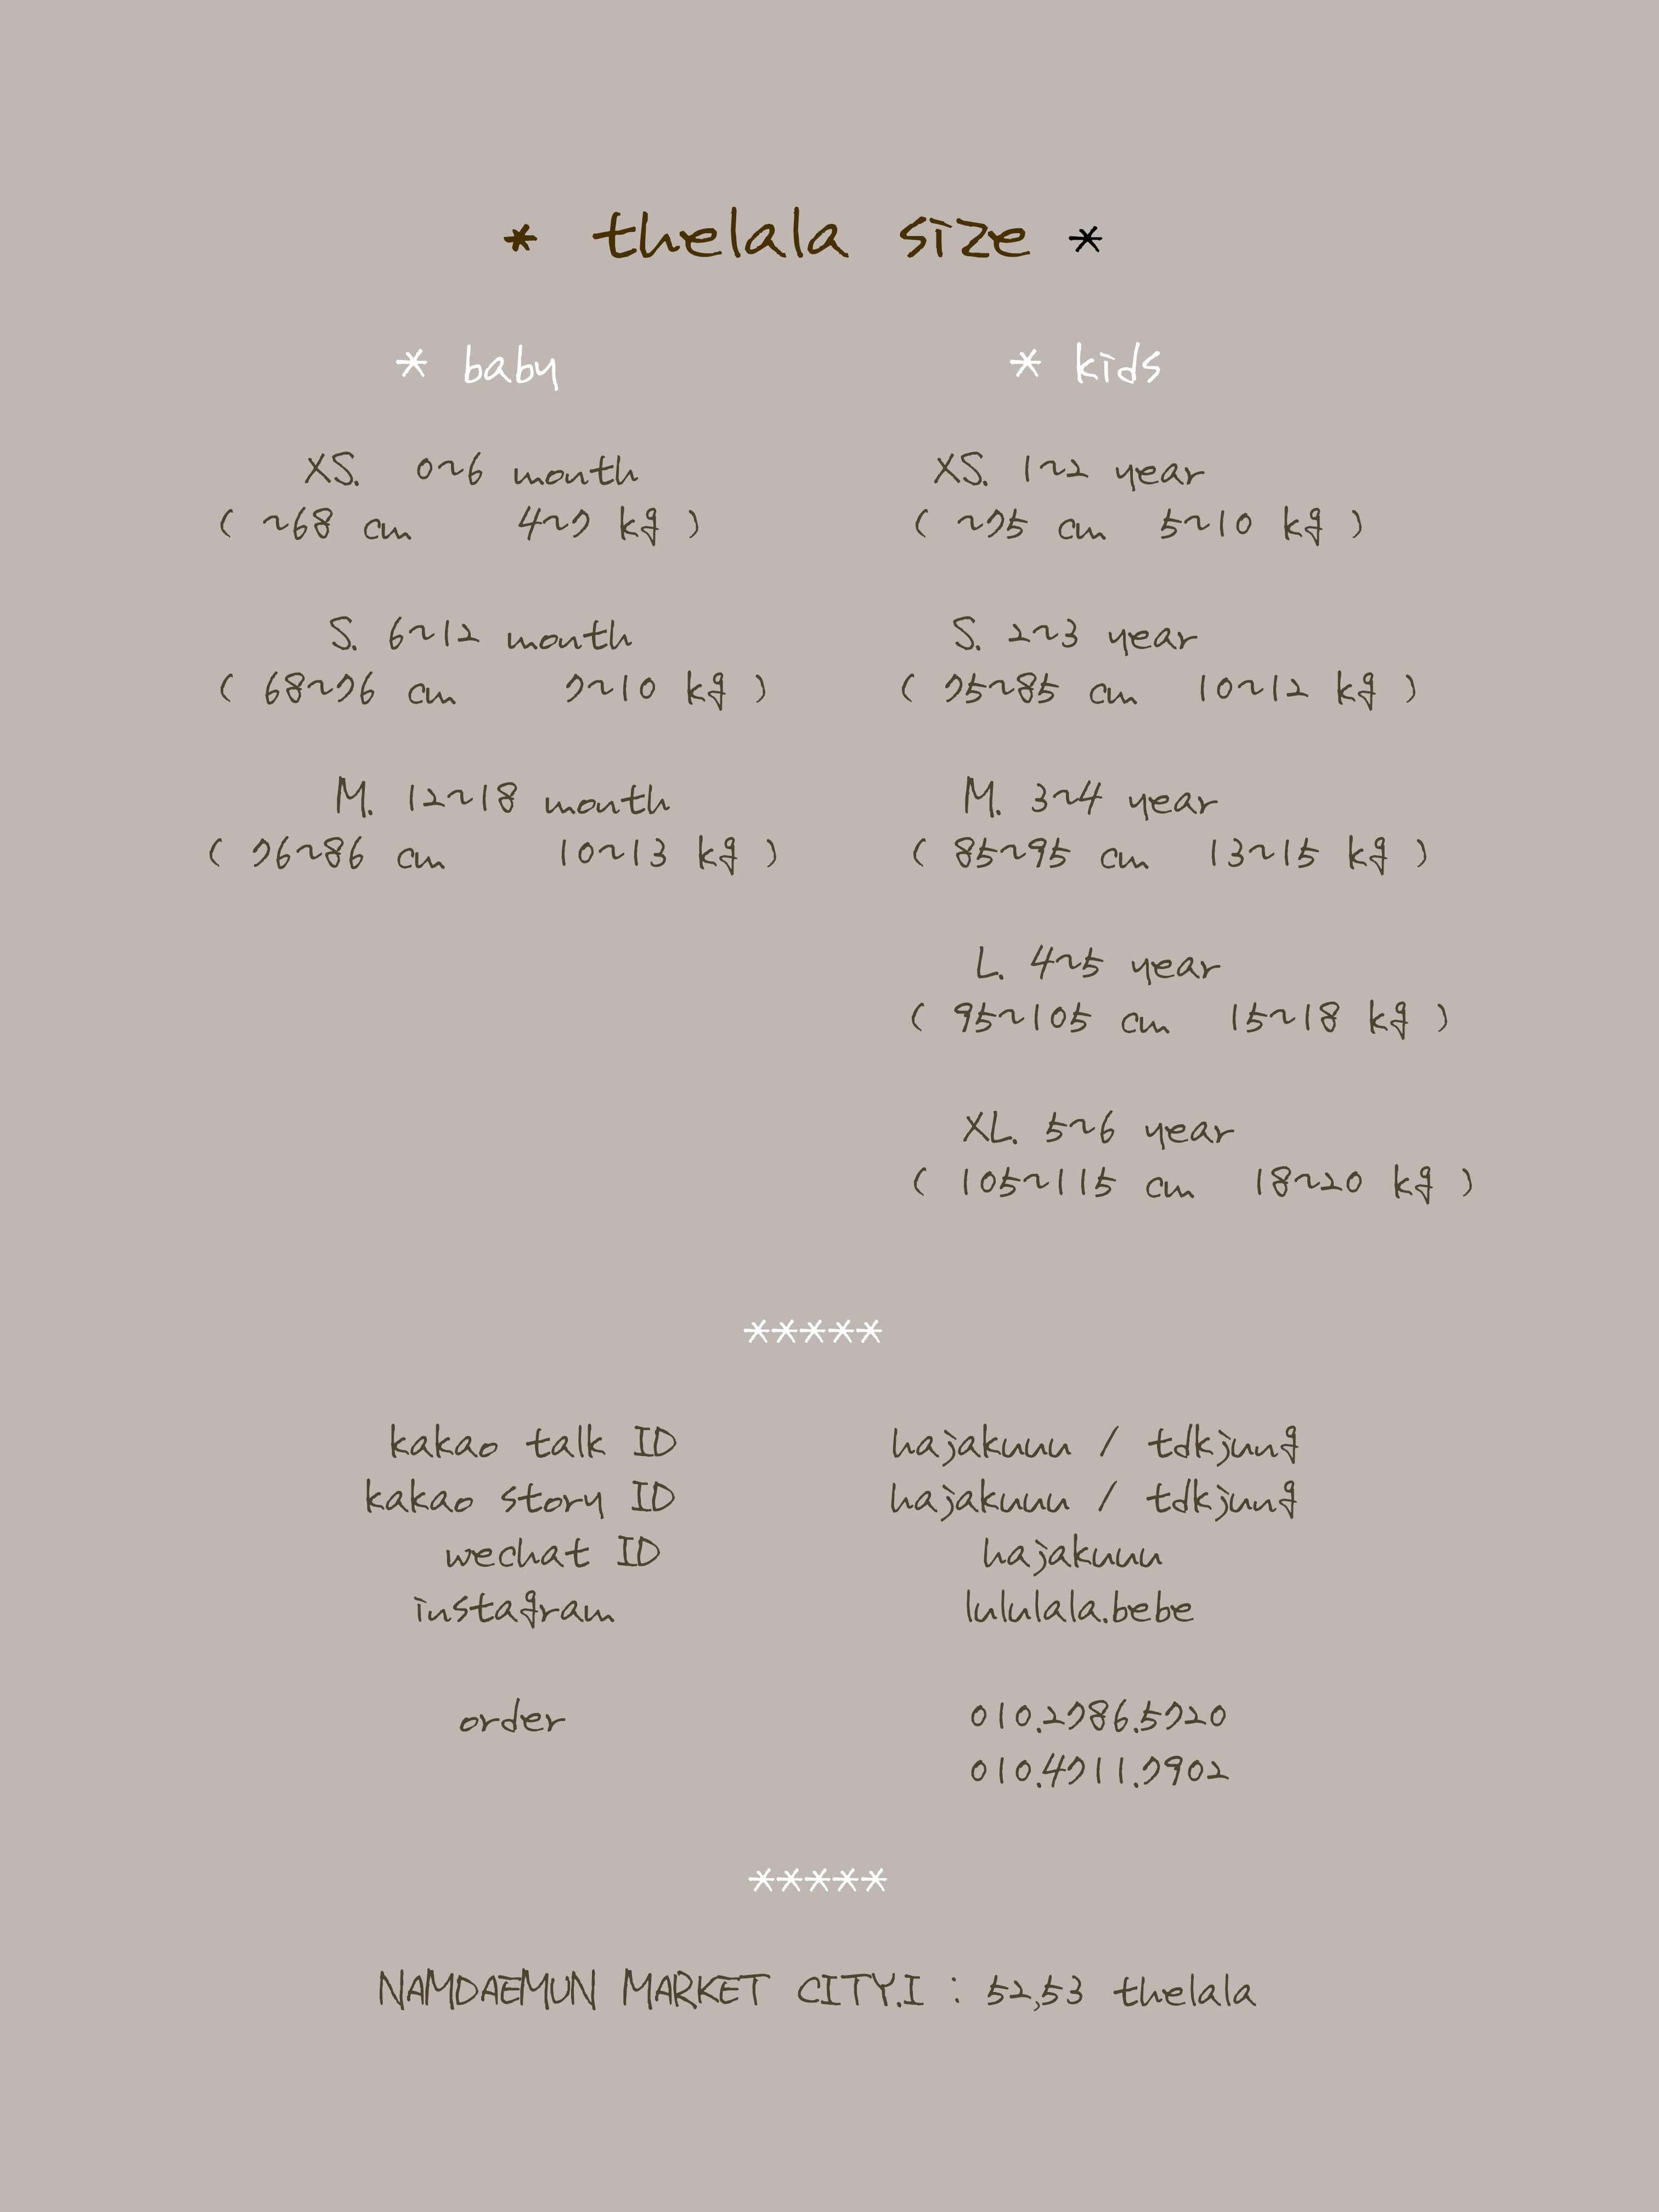 * thelala size *
* baby
XS. 0~6 month
( ~68 cm 4~7 kg )
S. 6~12 month
( 68~76 cm 7~10 kg )
M. 12~18 month
( 76~86 cm 10~13 kg )
* kids
XS. 1~2 year
( ~75 cm 5~10 kg )
S. 2~3 year
( 75~85 cm 10~12 kg )
M. 3~4 year
( 85~95 cm 13~15 kg )
L. 4~5 year
( 95~105 cm 15~18 kg )
XL. 5~6 year
( 105~115 cm 18~20 kg )
*****
kakao talk ID hajakuuu / tdkjung
kakao story ID hajakuuu / tdkjung
wechat ID hajakuuu
instagram lululala.bebe
order 010.2786.5720
010.4711.7902
*****
NAMDAEMUN MARKET CITY.I : 52,53 thelala